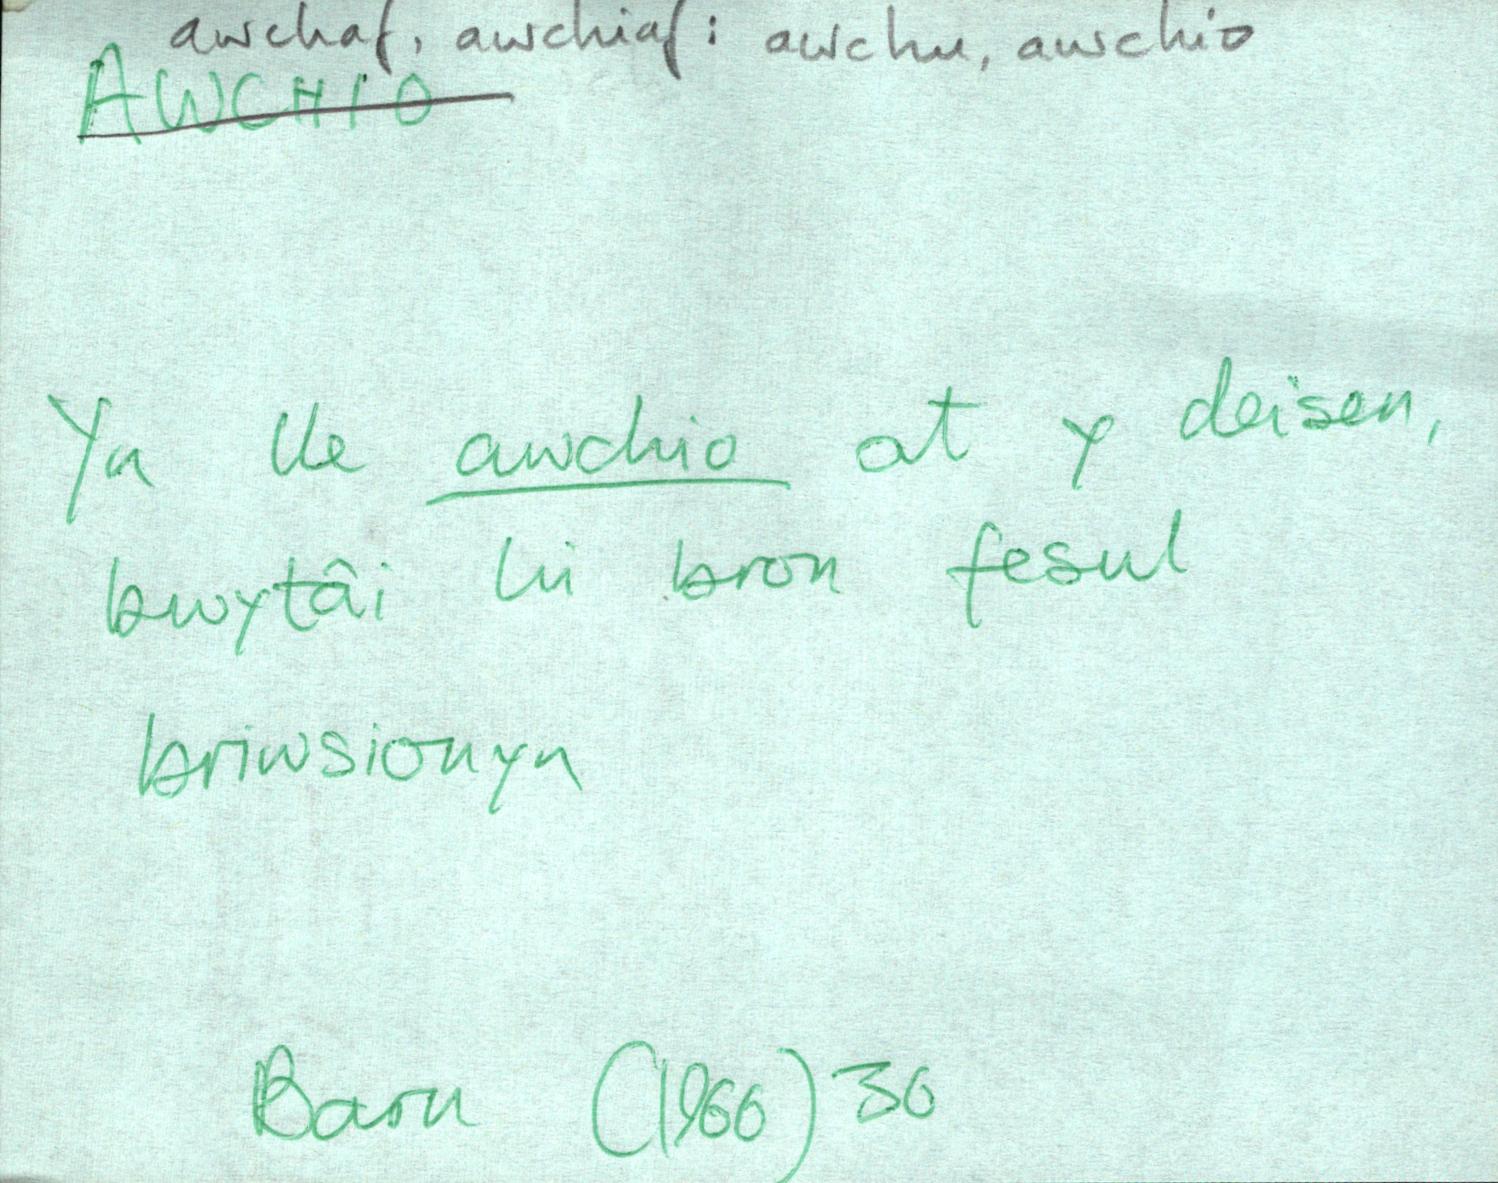 awchaf, awchiaf: awchu, awchio
AWCHIO
Yn lle awchio at y deisen,
bwytâi hi bron fesul
briwsionyn
Barn (1966) 36